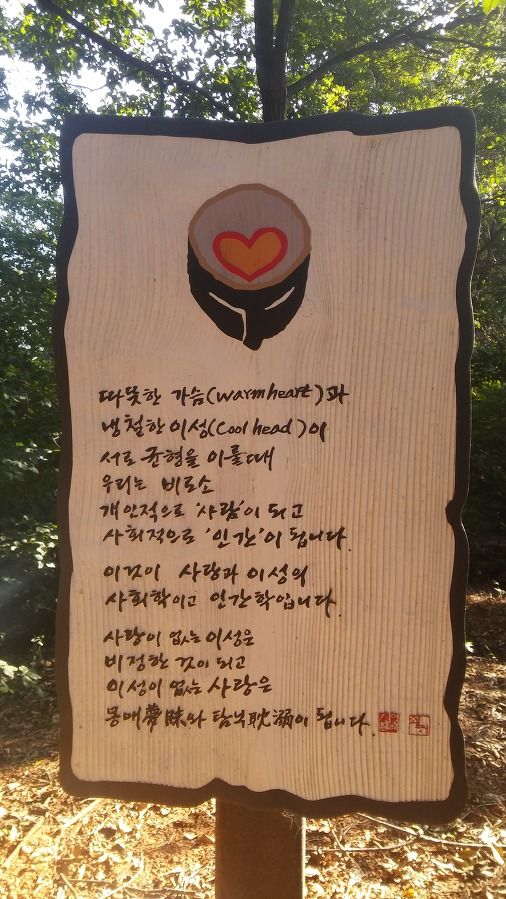 따뜻한 가슴(warm heart)과
냉철한 이성(cool head)이
서로 균형을 이룰때
우리는 비로소
개인적으로 '사람'이 되고
사회적으로 '인간'이 됩니다.
이것이 사랑과 이성의
사회학이고 인간학입니다
사랑이 없는 이성은
비정한 것이 되고
이성이 없는 사랑은
몽매夢昧와 탐닉耽溺이 됩니다.